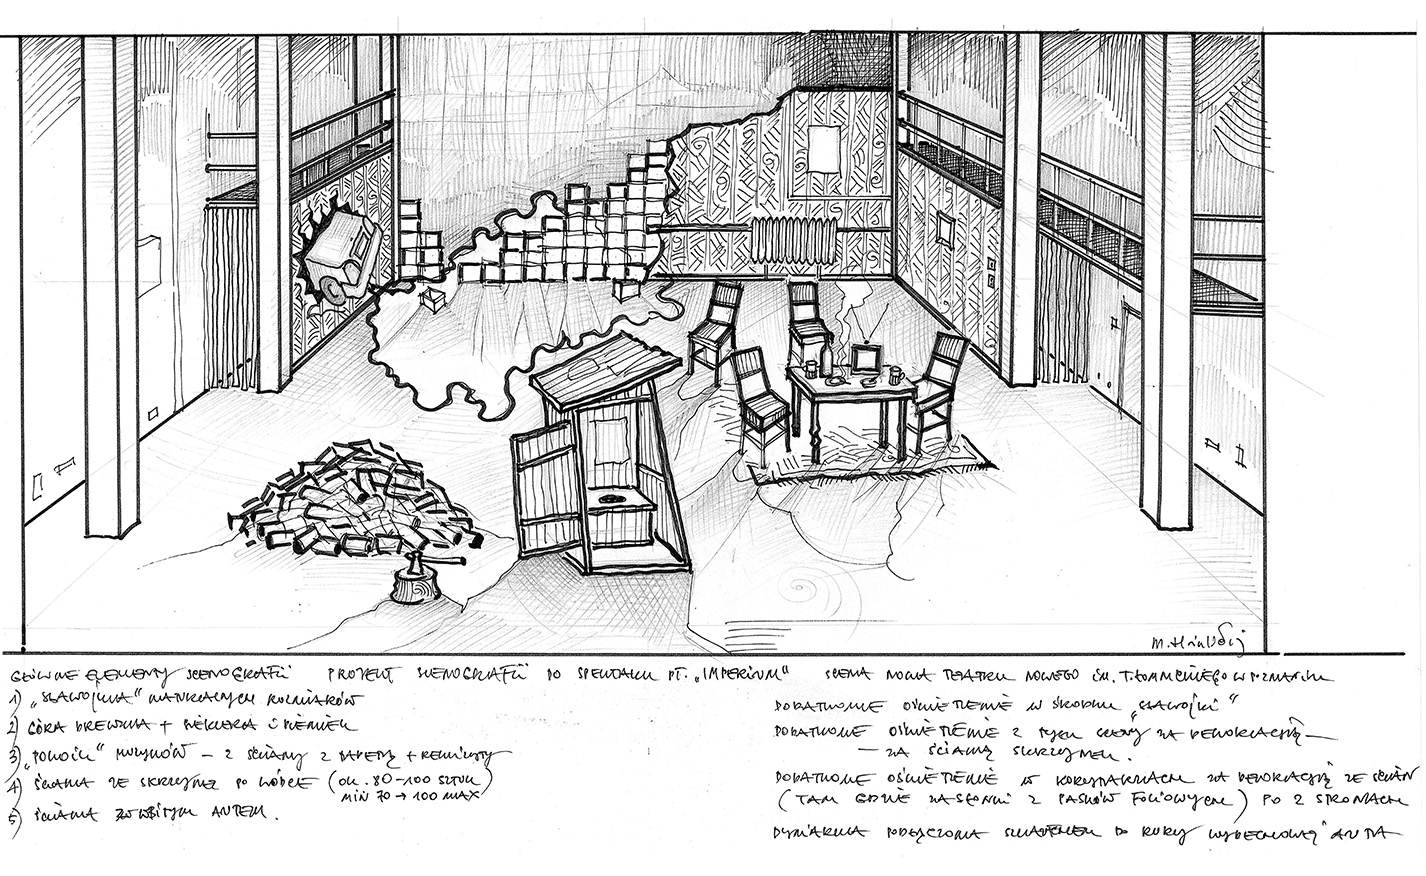 GŁÓWNE ELEMENTY SCENOGRAFII
PROJEKT SCENOGRAFII DO SPEKTAKLU PT. „IMPERIUM”
SCENA NOWA TEATRU NOWEGO IM. T. ŁOMNICKIEGO W POZNANIU
1) „SŁAWOJKA” NATURALNYCH ROZMIARÓW
2) GÓRA DREWNA + SIEKIERA I PIENIEK
3) „POKOIK” – 2 ŚCIANY Z TAPETĄ + REKWIZYTY
4) ŚCIANA ZE SKRZYNEK PO WÓDCE (OK. 80–100 SZTUK)
MIN 70 → 100 MAX
5) ŚCIANA Z WBITYM AUTEM.
DODATKOWE OŚWIETLENIE W ŚRODKU „SŁAWOJKI”
DODATKOWE OŚWIETLENIE Z TYŁU SCENY ZA DEKORACJĄ –
– ZA ŚCIANĄ SKRZYNEK.
DODATKOWE OŚWIETLENIE W KORYTARZACH ZA DEKORACJĄ ZE ŚCIAN
(TAM GDZIE ZASŁONKI Z PASKÓW FOLIOWYCH) PO 2 STRONACH
DYMIARKA PODŁĄCZONA DO RURY WYDECHOWEJ AUTA